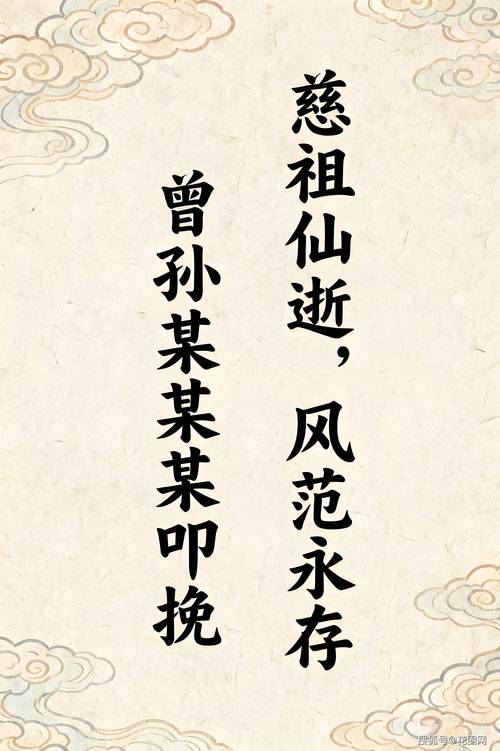 慈祖仙逝，风范永存
曾孙某某某叩挽
搜狐号@花圈网